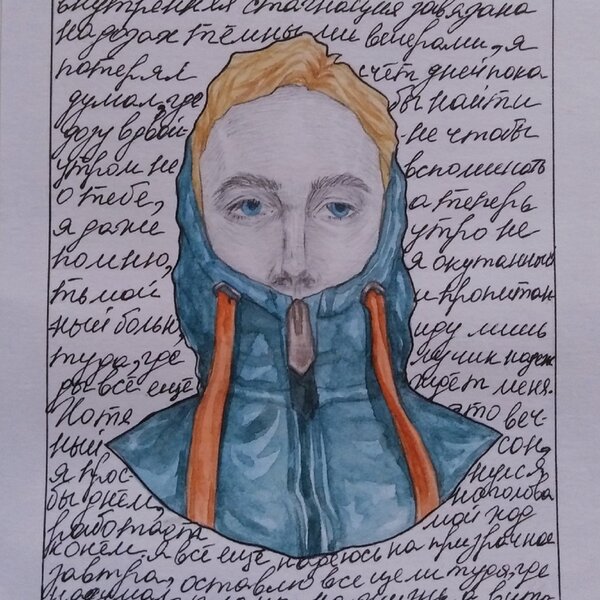 внутренняя стагнация завязана
на дозах тёмными вечерами, я
потерял счёт дней пока
думал, где бы найти
дозу вдвой- не чтобы
утром не вспоминать
о тебе, а теперь
я даже утро не
помню, я окутанный
тьмой и пропитан-
ный болью, иду лишь
туда, где лучик надеж-
ды всё ещё ждёт меня.
Хотя это веч-
ный сон,
я прос- нулся
бы днём, но голова
работает мой под
конём. я всё ещё надеюсь на призрачное
завтра, оставлю все цели туда, где